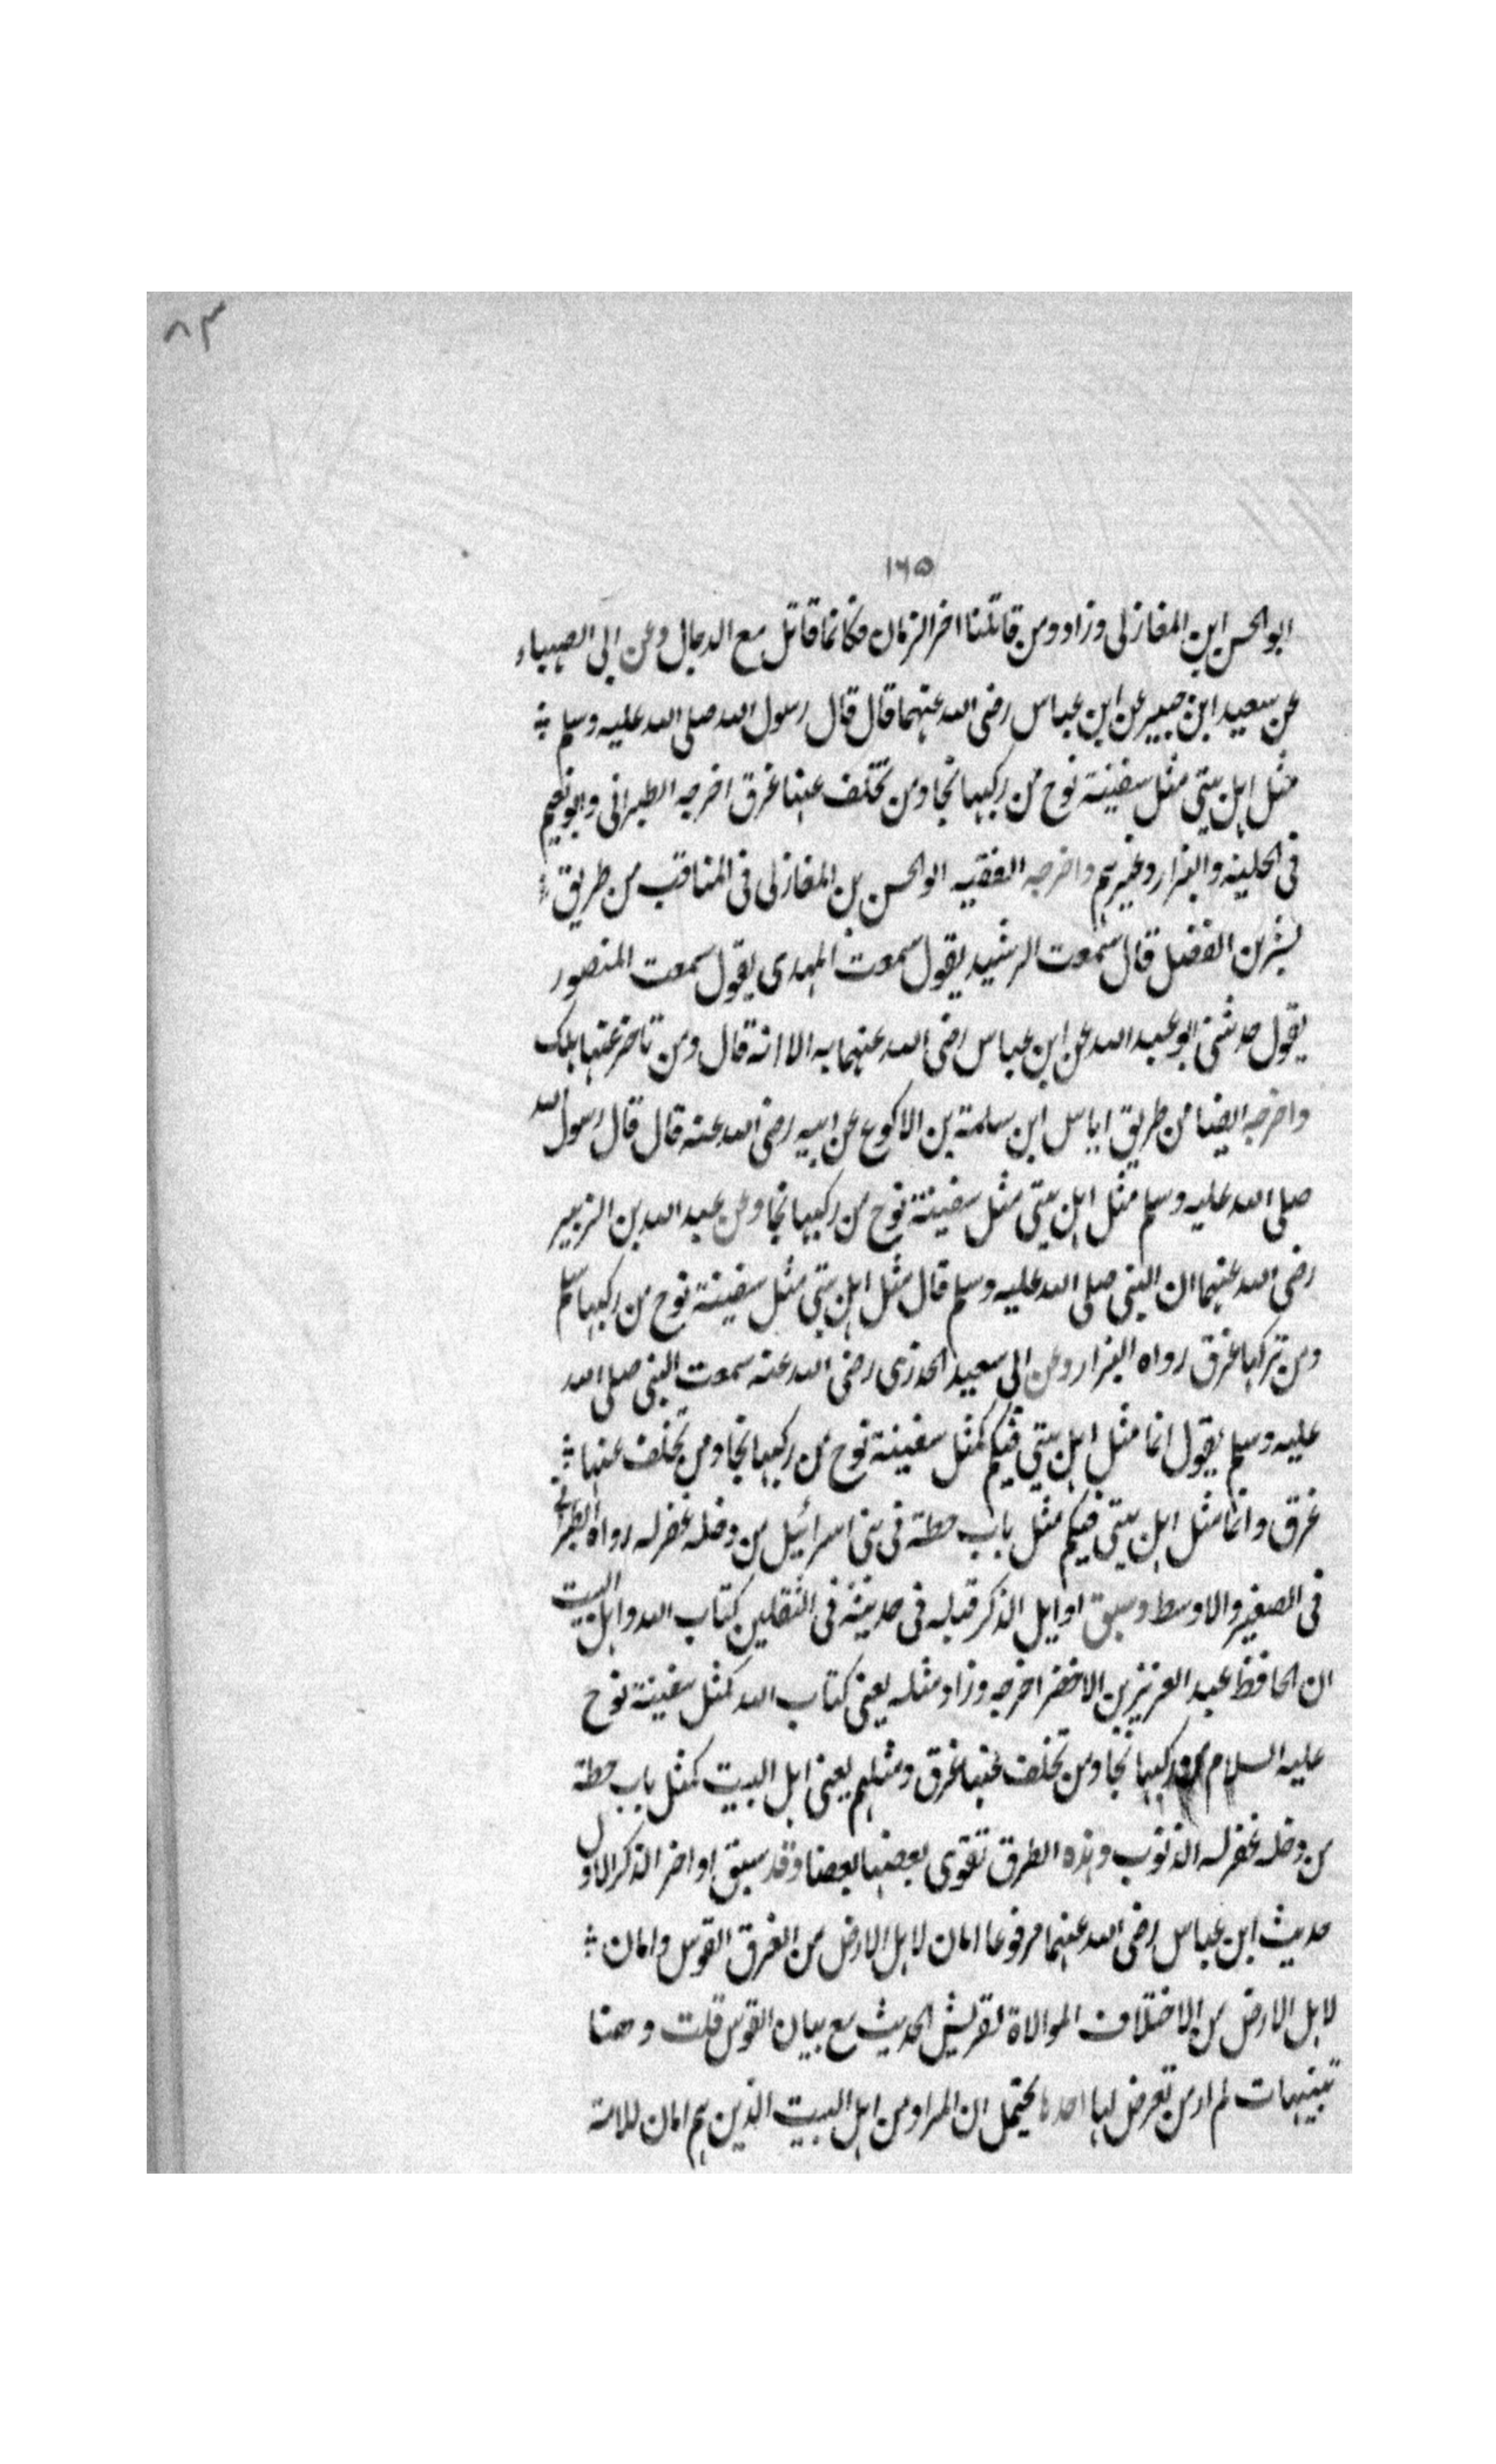 ٨٣
١٦٥
ابو الحسن ابن المغازلى وزاد ومن قاتلنا اخر الزمان فكانما قاتل مع الدجال وعن ابى الصهباء
عن سعيد ابن جبير عن ابن عباس رضى الله عنهما قال قال رسول الله صلى الله عليه وسلم
مثل اهل بيتى مثل سفينة نوح من ركبها نجا ومن تخلف عنها غرق اخرجه الطبرانى وابو نعيم
فى الحلية والبزار وغيرهم واخرجه الفقيه ابو الحسن بن المغازلى فى المناقب من طريق
بشر بن الفضل قال سمعت الرشيد يقول سمعت المهدى يقول سمعت المنصور
يقول حدثنى ابو عبد الله عن ابن عباس رضى الله عنهما به الا انه قال ومن تاخر عنها هلك
واخرجه ايضا من طريق اياس ابن سلمة بن الاكوع عن ابيه رضى الله عنه قال قال رسول الله
صلى الله عليه وسلم مثل اهل بيتى مثل سفينة نوح من ركبها نجا وعن عبد الله بن الزبير
رضى الله عنهما ان النبى صلى الله عليه وسلم قال مثل اهل بيتى مثل سفينة نوح من ركبها سلم
ومن تركها غرق رواه البزار وعن ابى سعيد الخدرى رضى الله عنه سمعت النبى صلى الله
عليه وسلم يقول انما مثل اهل بيتى فيكم كمثل سفينة نوح من ركبها نجا ومن تخلف عنها
غرق وانما مثل اهل بيتى فيكم مثل باب حطة فى بنى اسرائيل من دخله غفر له رواه الطبرانى
فى الصغير والاوسط وسبق اوايل الذكر قبله فى حديثه فى الثقلين كتاب الله واهل البيت
ان الحافظ عبد العزيز بن الاخضر اخرجه وزاد مثله يعنى كتاب الله كمثل سفينة نوح
عليه السلام من ركبها نجا ومن تخلف عنها غرق ومثلهم يعنى اهل البيت كمثل باب حطة
من دخله غفر له الذنوب وهذه الطرق تقوى بعضها بعضا وقد سبق اواخر الذكر الاول
حديث ابن عباس رضى الله عنهما مرفوعا امان لاهل الارض من الغرق القوس وامان
لاهل الارض من الاختلاف الموالاة لقريش الحديث مع بيان القوس قلت وهنا
تنبيهات لم ار من تعرض لها احدها يحتمل ان المراد من اهل البيت الذين هم امان للامة